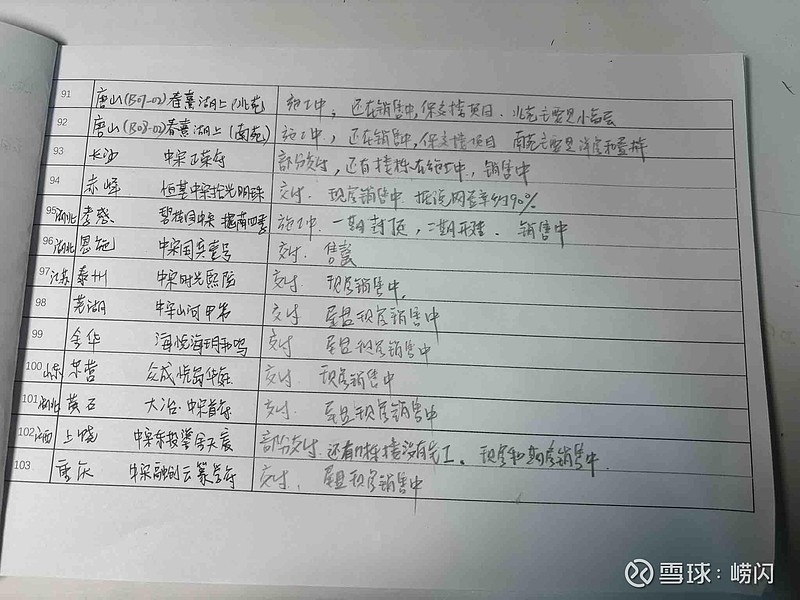 91 唐山(B07-02)春熹湖上(北苑) 施工中, 还在销售中,保交楼项目. 北苑主要是小高层
92 唐山(B03-02)春熹湖上(南苑) 施工中, 还在销售中,保交楼项目 南苑主要是洋房和叠拼
93 长沙 中梁正荣府 部分交付,还有楼栋在施工中, 销售中
94 赤峰 恒基中梁拾光明珠 交付. 现房销售中. 据说网签率约90%
95 湖北 孝感 碧桂园中梁 施工中. 一期封顶, 二期在建. 销售中
96 湖北 恩施 中梁国宾壹号 交付. 售罄
97 江苏 泰州 中梁时光熙院 交付 现房销售中.
98 芜湖 中梁山河 交付 尾盘现房销售中
99 金华 海悦海玥和鸣 交付 尾盘现房销售中
100 山东 东营 众成悦岛华庭 交付 现房销售中
101 湖北 黄石 大冶·中梁首府 交付. 尾盘现房销售中
102 江西 上饶 中梁东投鎏金天宸 部分交付. 还有 栋楼没有完工。 现房和期房销售中.
103 重庆 中梁融创云篆尝府 交付. 尾盘现房销售中
雪球:崂闪